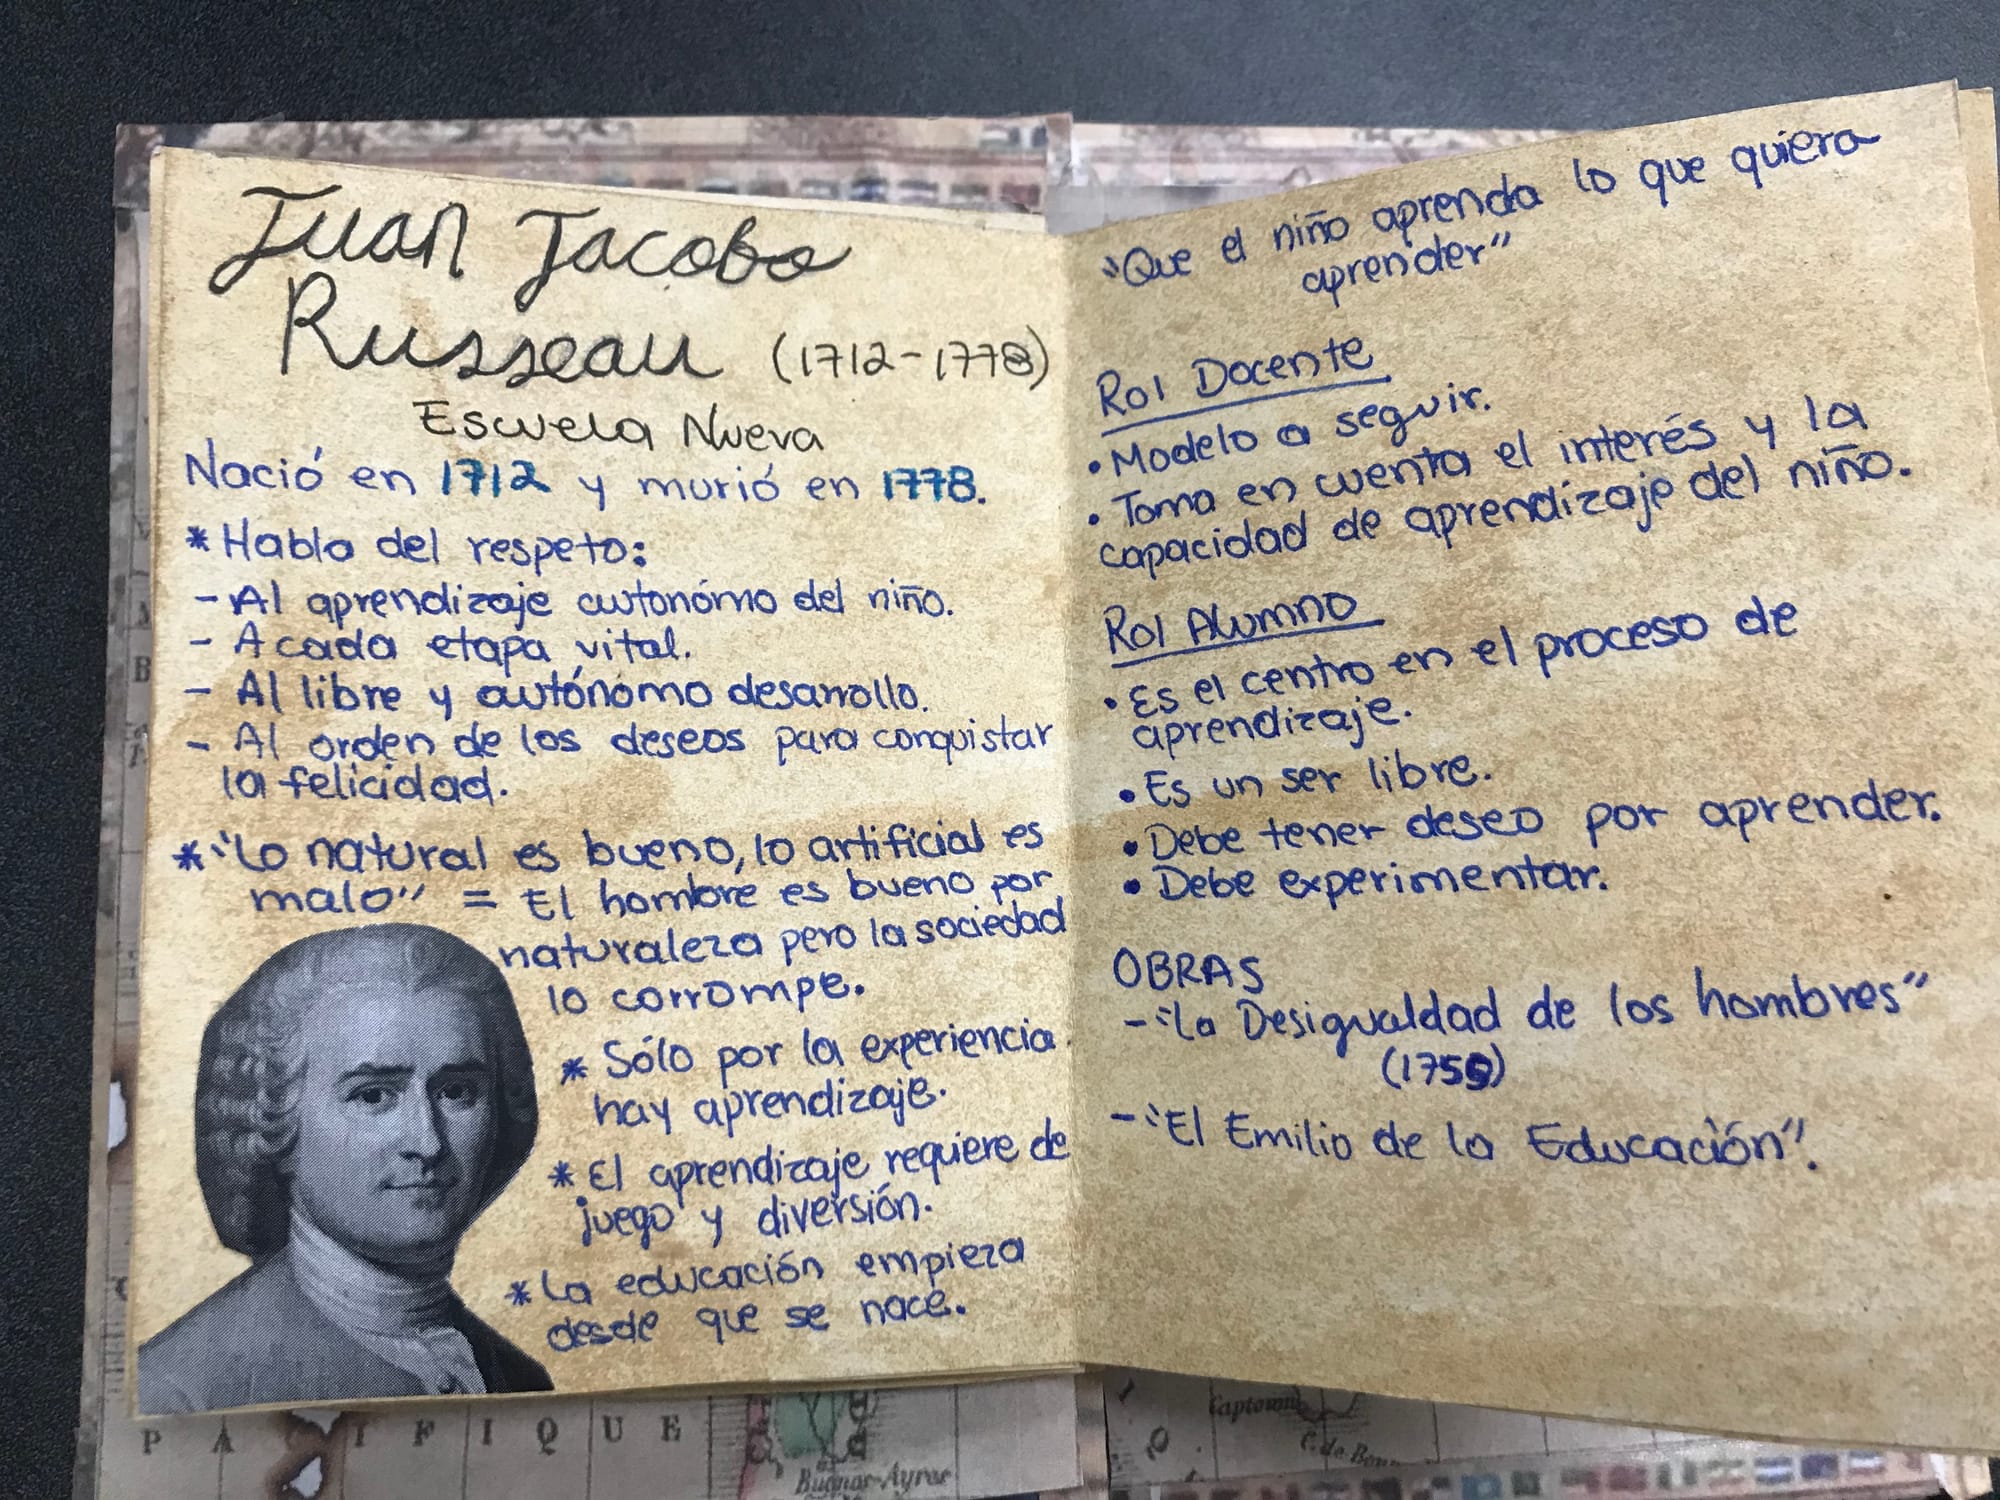 Juan Jacobo
Russeau (1712-1778)
Escuela Nueva
Nació en 1712 y murió en 1778.
* Habla del respeto:
- Al aprendizaje autonómo del niño.
- A cada etapa vital.
- Al libre y autónomo desarrollo.
- Al orden de los deseos para conquistar
la felicidad.
* "Lo natural es bueno, lo artificial es
malo" = El hombre es bueno por
naturaleza pero la sociedad
lo corrompe.
* Sólo por la experiencia
hay aprendizaje.
* El aprendizaje requiere de
juego y diversión.
* La educación empieza
desde que se nace.
P A I F I Q U E
Buenos-Ayres
"Que el niño aprenda lo que quiera
aprender"
Rol Docente
• Modelo a seguir.
• Toma en cuenta el interés y la
capacidad de aprendizaje del niño.
Rol Alumno
• Es el centro en el proceso de
aprendizaje.
• Es un ser libre.
• Debe tener deseo por aprender.
• Debe experimentar.
OBRAS
- "La Desigualdad de los hombres"
(1755)
- "El Emilio de la Educación".